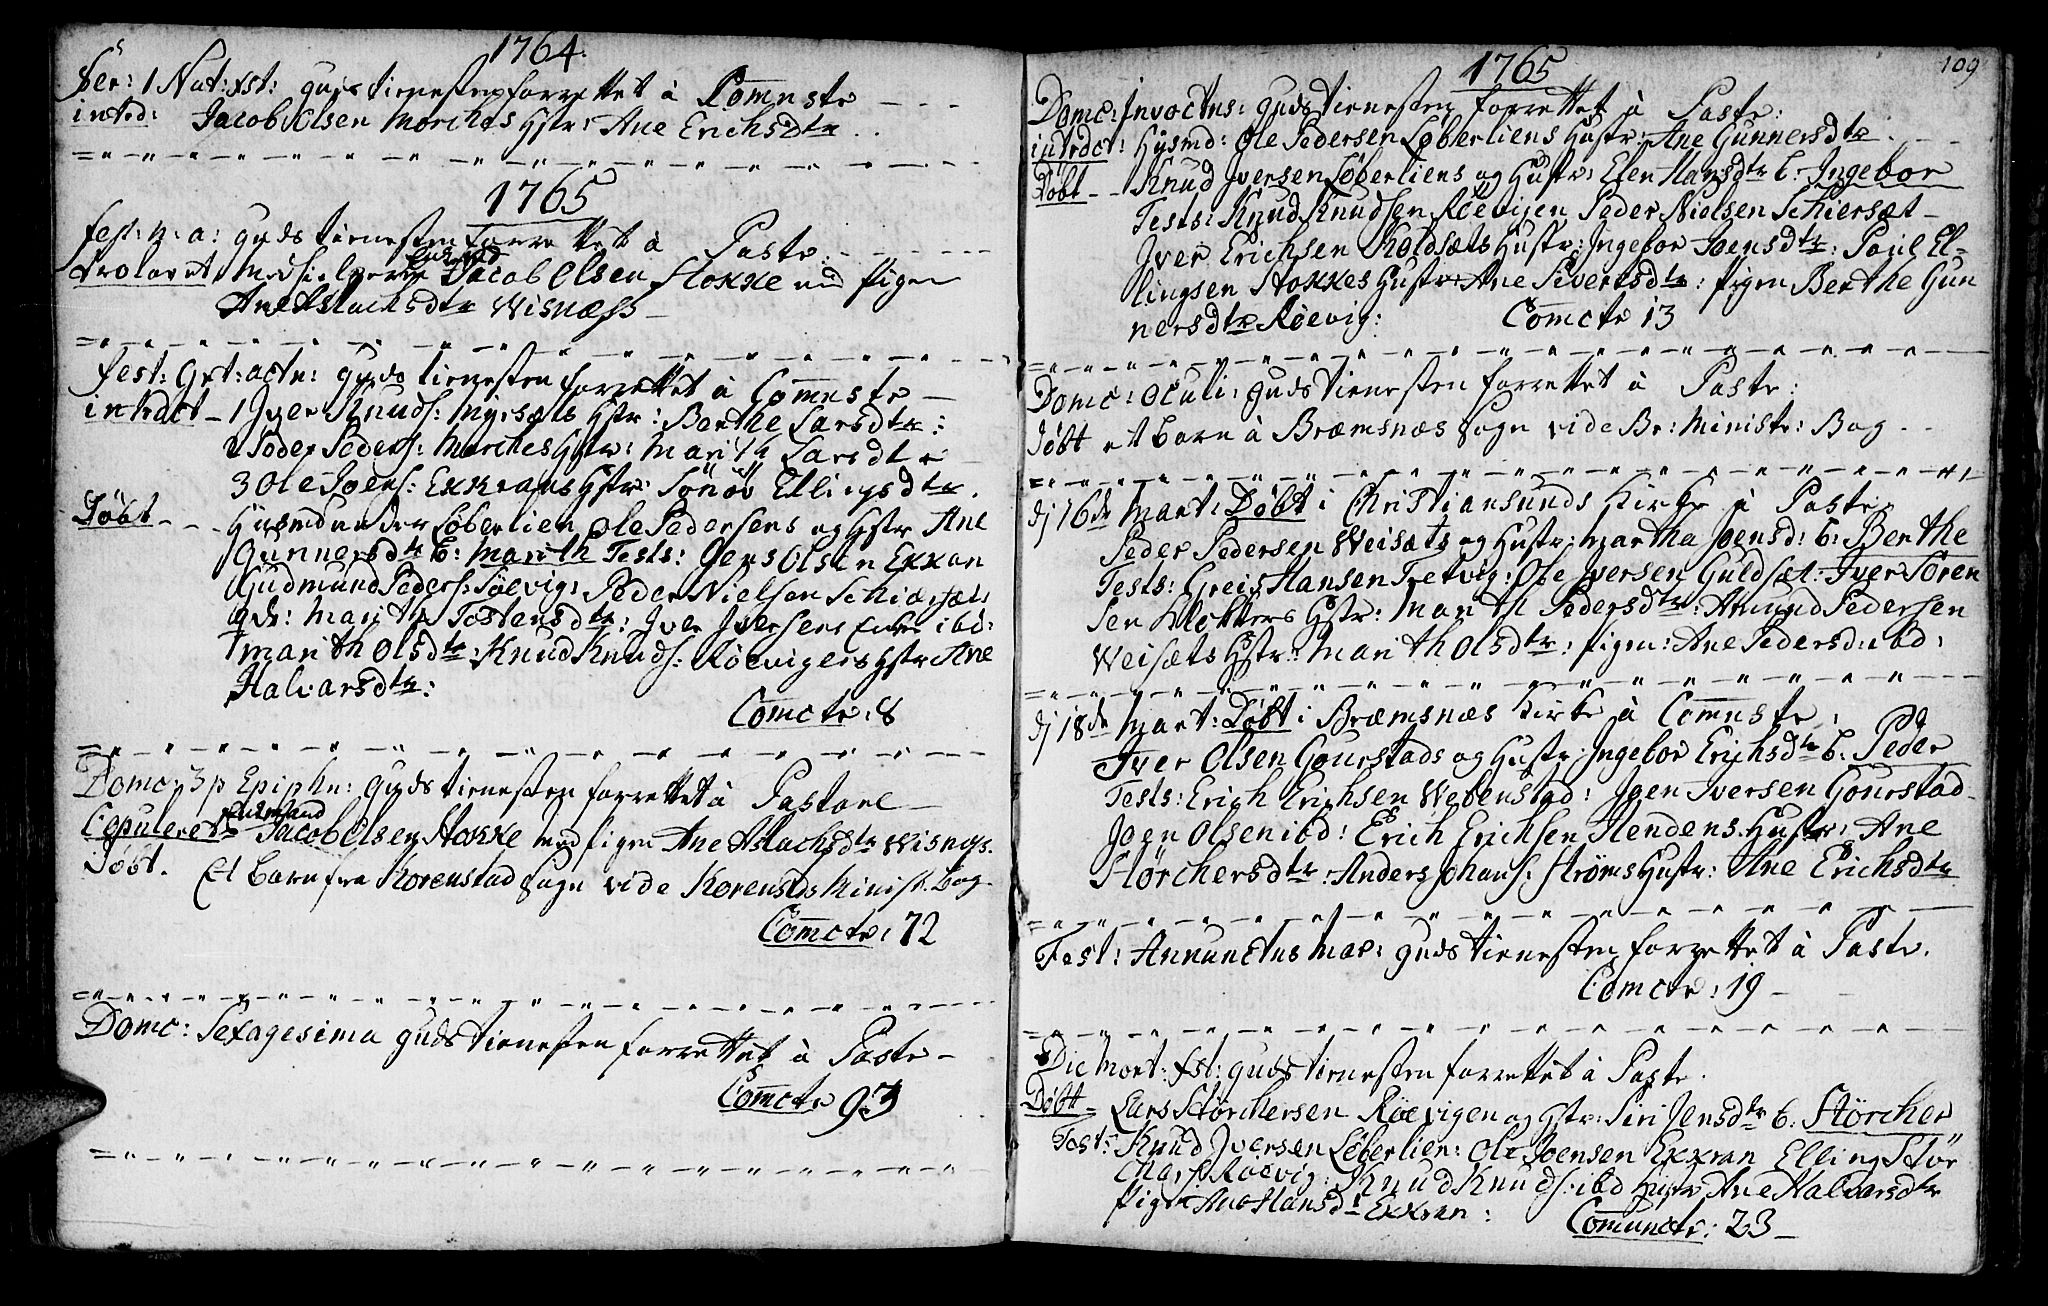 1764.
Fer: 1 Nat: Xsti: gudstienesten forrettet à Comnste
introd: Jacob Olsen Morches Hstr: Ane Erichsdtr
1765
fest: n: a: gudstienesten forrettet à Paste:
Enkemand
Trolovet Jacob Olsen Stokke med Pigen
Ane Aslachsdtr Wisnæss
fest: gudstienesten forrettet à Comnste
introct 1 Jver Knuds: Hstr: Berthe Larsdtr:
2 Peders: Morches Hstr: Marith Larsdtr
3 Ole Joens: Exkrans Hstr: Sönöv Ellingsdtr.
Döbt Huusmd under Löberlien Ole Pedersens og Hstr Ane
Gunnersdtr b: Marith Tests: Jens Olsen Exkran
Gudmund Peders: Röevig: Peder Nielsen Schiersæt:
Marith Tostensdtr: Jver Jversens ibd:
Marith Olsdtr: Knud Knuds: Röevigens Hstr Ane
Halvarsdtr:
Comctr: 8
Domc: 3 p Epiphn: gudstienesten forrettet à Pastore
Enkemand
Copuleret Jacob Olsen Stokke med Pigen Ane Aslachsdtr Wisnes.
Döbt. Et barn fra Korenstad Sogn vide Korenstds Minist. bog.
Comctr: 72
Domc: Sexagesima gudstienesten forrettet à Paste
Comctr 93
1765
109
Domc: Invoctus: gudstienesten forrettet à Paste:
introdct: Huusmd: Ole Pedersen Löberliens Hustr: Ane Gunnersdtr
Döbt Knud Jversen Löberliens og Hustr: Elen Hansdtr b: Ingebor
Tests: Knud Knudsen Röevigen Peder Nielsen Schiersæt
Jver Erichsen Koldsæts Hustr: Ingebor Joensdtr: Poul El-
lingsen Stokkes Hustr: Ane Sivertsdtr: Pigen Berthe Gun
nersdtr Röevig: Comctr 13
Domc: Oculi: gudstienesten forrettet à Paste:
Döbt et barn à Bræmsnæs Sogn vide Br: Ministr: Bog
dj 16de Mart: Döbt i Christiansunds Kirke à Paste
Peder Pedersen Weisæts og Hustr: Martha Joensd: b: Berthe
Tests: Greis Hansen Tretvig: Ole Jversen Guldsæt: Jver Sören
sen Klokkers Hstr: Marith Pedersdtr: Amund Pedersen
Weisæts Hstr: Marith Olsdtr: Pigen: Ane Pedersd: ibd:
dj 18de Mart: Döbt i Bræmsnæs Kirke à Comnste:
Jver Olsen Gourstads og Hustr: Ingebor Erichsdtr b: Peder
Tests: Erich Erichsen Webenstad: Joen Jversen Gourstad
Joen Olsen ibd: Erich Erichsen Hendens Hustr: Ane
Störchersdtr: Anders Johans: Ströms Hustr: Ane Erichsdtr
Fest: Annunctus Mar: gudstienesten forrettet à Paste.
Comctr: 19
Die Mort: Xst: gudstienesten forrettet à Paste.
Döbt Lars Störchersen Röevigen og Hstr: Siri Jensdtr b: Störcher
Test: Knud Jversen Löberlien: Ole Joensen Exkran Elling Stör
chers: Röevig: Knud Knuds: ibd Hustr Ane Halvarsdtr
Pigen Ane Hansdt Exkran:
Comunctr: 23